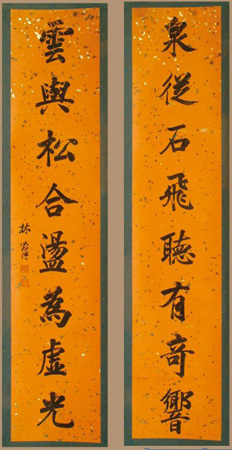 泉從石飛聽有奇響
雲與松合盪為虛光
林